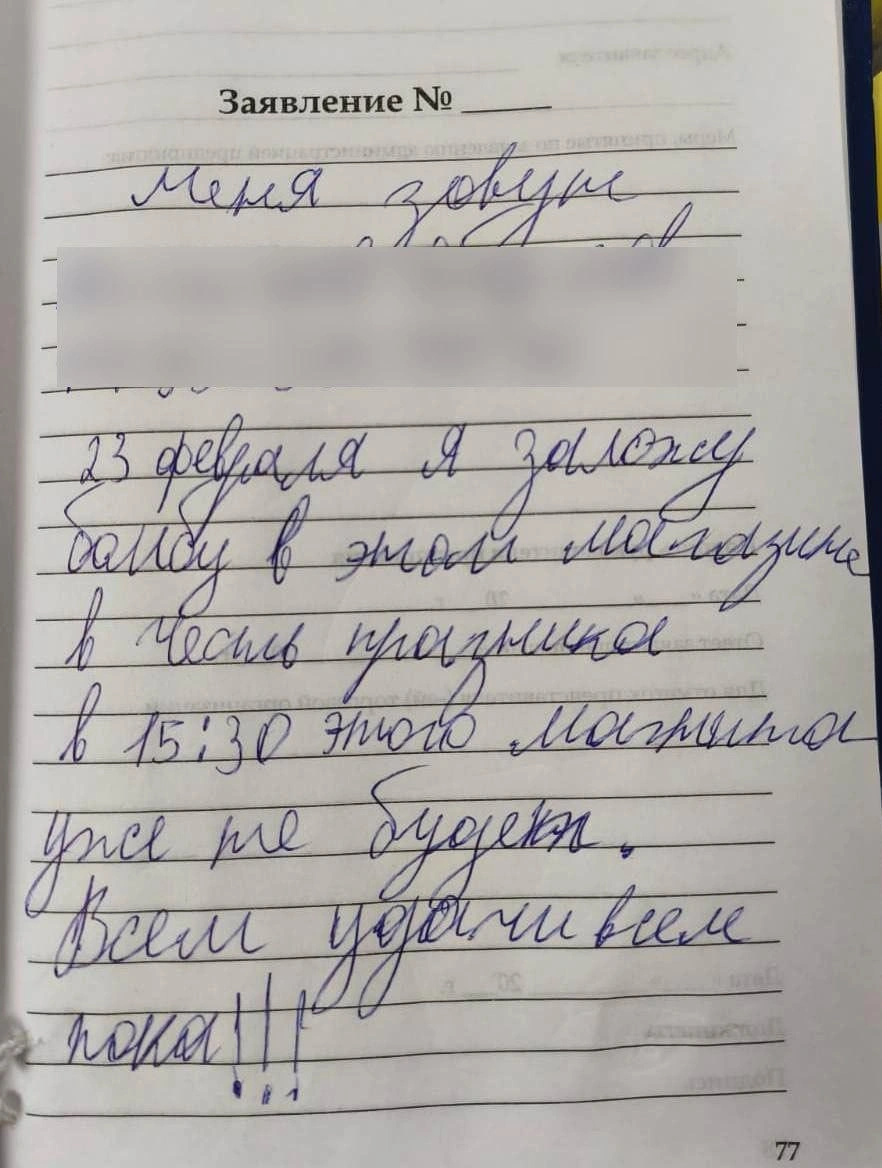 Заявление №
Меня зовут
23 февраля я заложу
бомбу в этом магазине
в честь празника
в 15:30 этого магнита
уже не будет.
Всем удачи всем
пока!!!
77